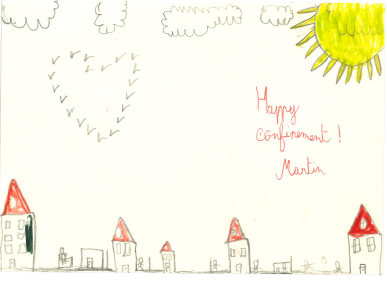 Happy
confinement !
Martin